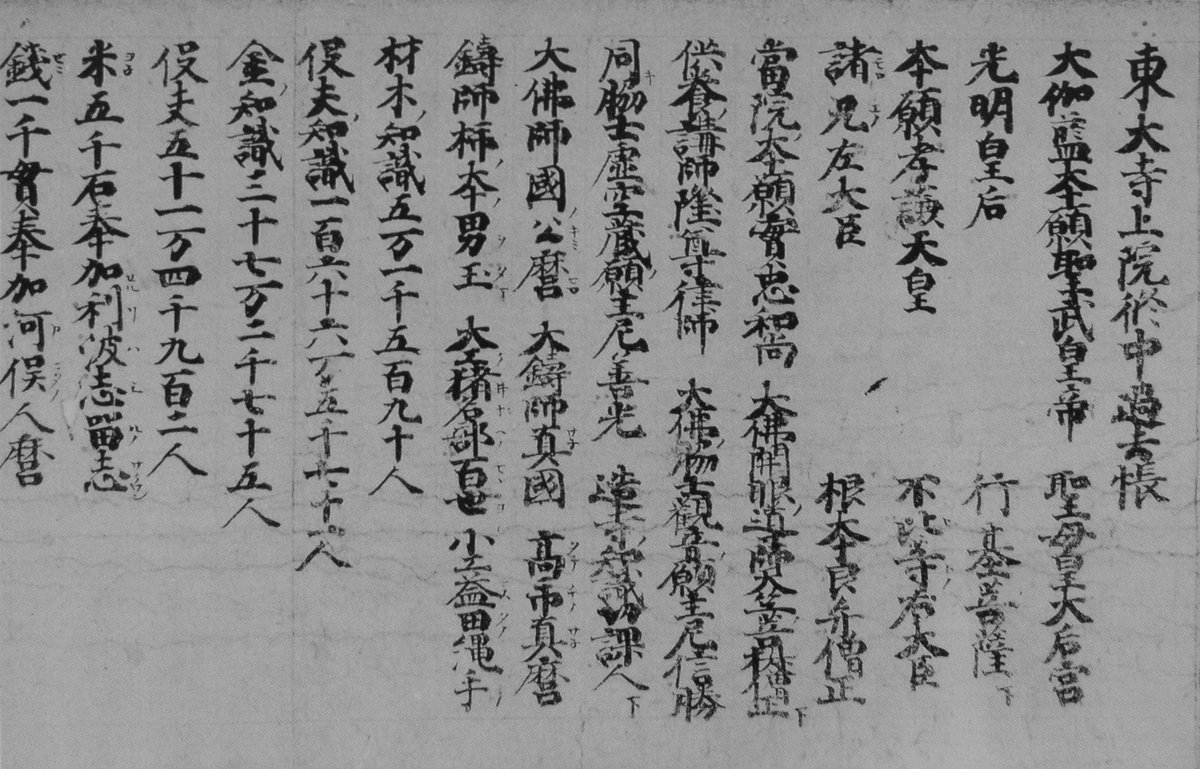 東大寺上院修中過去帳
大伽藍本願聖武皇帝 聖母皇大后宮
光明皇后 行基菩薩 下
本願孝謙天皇 不比等右大臣
諸兄左大臣 根本良弁僧正
當院本願實忠和尚 大佛開眼導師天竺菩提僧正 下
供養講師隆尊律師 大佛脇士觀音願主尼信勝
同脇士虛空藏願主尼善光 造寺知識功課人 下
大佛師國公麿 大鑄師真國 高市真麿
鑄師柿本男玉 大工猪名部百世 小工益田縄手
材木知識五万一千五百九十人
役夫知識一百六十六万五千七十一人
金知識三十七万二千七十五人
役夫五十一万四千九百二人
米五千石奉加利波志留志
錢一千貫奉加河俣人麿